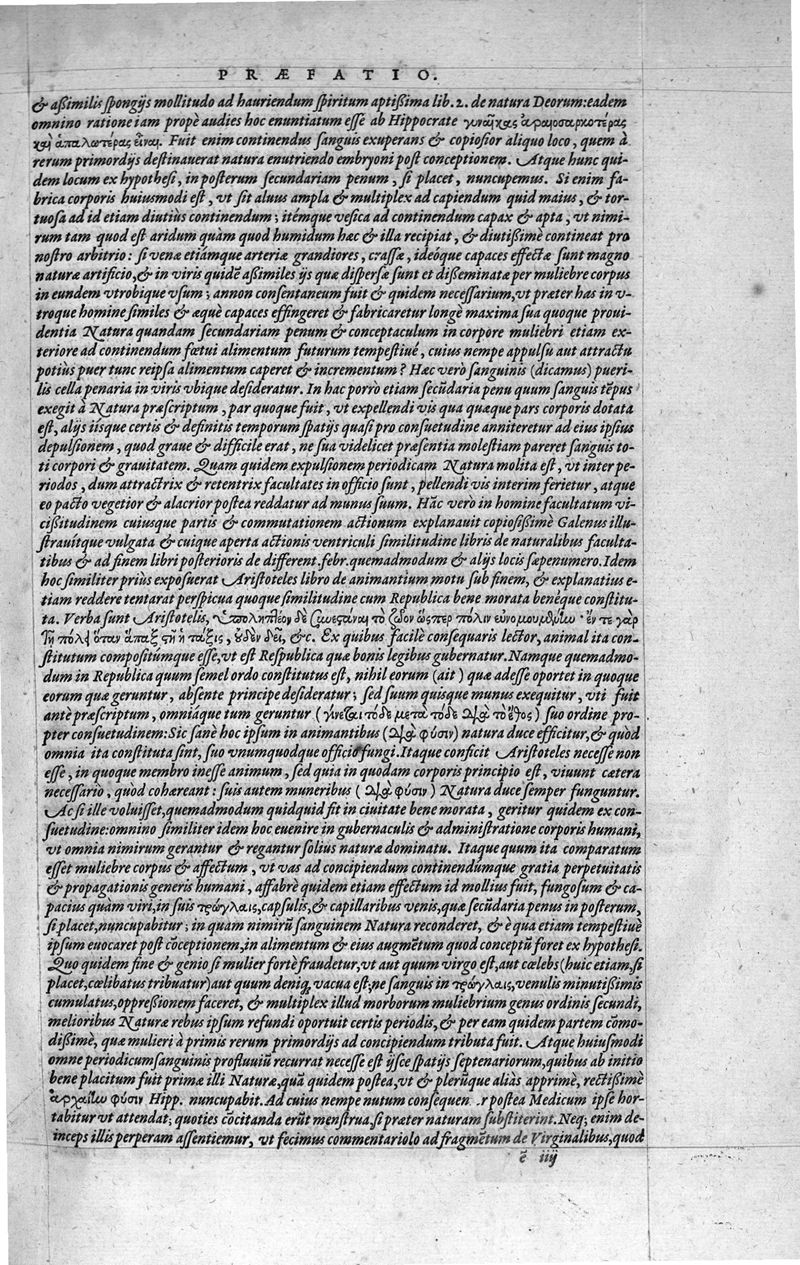 PRÆFATIO.
& aßimilis spongijs mollitudo ad hauriendum spiritum aptißima lib. 2. de natura Deorum: eadem
omnino ratione iam propè audies hoc enuntiatum esse ab Hippocrate γυναῖκας ἀραιοσαρκοτέρας
καὶ ἁπαλωτέρας εἶναι. Fuit enim continendus sanguis exuperans & copiosior aliquo loco, quem à
rerum primordijs destinauerat natura enutriendo embryoni post conceptionem. Atque hunc qui-
dem locum ex hypothesi, in posterum secundariam penum, si placet, nuncupemus. Si enim fa-
brica corporis huiusmodi est, vt sit aluus ampla & multiplex ad capiendum quid maius, & tor-
tuosa ad id etiam diutiùs continendum; itémque vesica ad continendum capax & apta, vt nimi-
rum tam quod est aridum quàm quod humidum hæc & illa recipiat, & diutißimè contineat pro
nostro arbitrio: si venæ etiámque arteriæ grandiores, crassæ, ideóque capaces effectæ sunt magno
naturæ artificio, & in viris quidẽ aßimiles ijs quæ dispersæ sunt et dißeminatæ per muliebre corpus
in eundem vtrobique vsum; annon consentaneum fuit & quidem necessarium, vt præter has in v-
troque homine similes & æquè capaces effingeret & fabricaretur longè maxima sua quoque proui-
dentia Natura quandam secundariam penum & conceptaculum in corpore muliebri etiam ex-
teriore ad continendum fœtui alimentum futurum tempestiué, cuius nempe appulsu aut attractu
potiùs puer tunc reipsa alimentum caperet & incrementum? Hæc verò sanguinis (dicamus) pueri-
lis cella penaria in viris vbique desideratur. In hac porrò etiam secũdaria penu quum sanguis tẽpus
exegit à Natura præscriptum, par quoque fuit, vt expellendi vis qua quæque pars corporis dotata
est, alijs iisque certis & definitis temporum spatijs quasi pro consuetudine anniteretur ad eius ipsius
depulsionem, quod graue & difficile erat, ne sua videlicet præsentia molestiam pareret sanguis to-
ti corpori & grauitatem. Quam quidem expulsionem periodicam Natura molita est, vt inter pe-
riodos, dum attractrix & retentrix facultates in officio sunt, pellendi vis interim ferietur, atque
eo pacto vegetior & alacrior postea reddatur ad munus suum. Hãc verò in homine facultatum vi-
cißitudinem cuiusque partis & commutationem actionum explanauit copiosißimè Galenus illu-
strauítque vulgata & cuique aperta actionis ventriculi similitudine libris de naturalibus faculta-
tibus & ad finem libri posterioris de different. febr. quemadmodum & alijs locis sæpenumero. Idem
hoc similiter priùs exposuerat Aristoteles libro de animantium motu sub finem, & explanatius e-
tiam reddere tentarat perspicua quoque similitudine cum Republica bene morata benéque constitu-
ta. Verba sunt Aristotelis, Ὑποληπτέον δὲ συνεστάναι τὸ ζῶον ὥσπερ πόλιν εὐνομουμένην· ἔν τε γὰρ
τῇ πόλει ὅταν ἅπαξ στῇ ἡ τάξις, οὐδὲν δεῖ, &c. Ex quibus facilè consequaris lector, animal ita con-
stitutum compositumque esse, vt est Respublica quæ bonis legibus gubernatur. Namque quemadmo-
dum in Republica quum semel ordo constitutus est, nihil eorum (ait) quæ adesse oportet in quoque
eorum quæ geruntur, absente principe desideratur; sed suum quisque munus exequitur, vti fuit
antè præscriptum, omniáque tum geruntur (γίνεται τόδε μετὰ τόδε διὰ τὸ ἔθος) suo ordine pro-
pter consuetudinem: Sic sanè hoc ipsum in animantibus (διὰ φύσιν) natura duce efficitur, & quòd
omnia ita constituta sint, suo vnumquodque officio fungi. Itaque conficit Aristoteles necesse non
esse, in quoque membro inesse animum, sed quia in quodam corporis principio est, viuunt cætera
necessariò, quòd cohæreant: suis autem muneribus (διὰ φύσιν) Natura duce semper funguntur.
Ac si ille voluisset, quemadmodum quidquid fit in ciuitate bene morata, geritur quidem ex con-
suetudine: omnino similiter idem hoc euenire in gubernaculis & administratione corporis humani,
vt omnia nimirum gerantur & regantur solius naturæ dominatu. Itaque quum ita comparatum
esset muliebre corpus & affectum, vt vas ad concipiendum continendumque gratia perpetuitatis
& propagationis generis humani, affabrè quidem etiam effectum id mollius fuit, fungosum & ca-
pacius quàm viri, in suis τρώγλαις, capsulis, & capillaribus venis, quæ secũdaria penus in posterum,
si placet, nuncupabitur; in quam nimirũ sanguinem Natura reconderet, & è qua etiam tempestiuè
ipsum euocaret post cõceptionem, in alimentum & eius augmẽtum quod conceptũ foret ex hypothesi.
Quo quidem fine & genio si mulier fortè fraudetur, vt aut quum virgo est, aut cœlebs (huic etiam, si
placet, cœlibatus tribuatur) aut quum deniq; vacua est; ne sanguis in τρώγλαις, venulis minutißimis
cumulatus, oppreßionem faceret, & multiplex illud morborum muliebrium genus ordinis secundi,
melioribus Naturæ rebus ipsum refundi oportuit certis periodis, & per eam quidem partem cõmo-
dißimè, quæ mulieri à primis rerum primordijs ad concipiendum tributa fuit. Atque huiusmodi
omne periodicum sanguinis profluuiũ recurrat necesse est ijsce spatijs septenariorum, quibus ab initio
bene placitum fuit primæ illi Naturæ, quã quidem postea, vt & plerũque aliàs apprimè, rectißimè
ἀρχαίην φύσιν Hipp. nuncupabit. Ad cuius nempe nutum consequen r postea Medicum ipse hor-
tabitur vt attendat; quoties cõcitanda erũt menstrua, si præter naturam substiterint. Neq; enim de-
inceps illis perperam assentiemur, vt fecimus commentariolo ad fragmẽtum de Virginalibus, quod
ẽ iiij